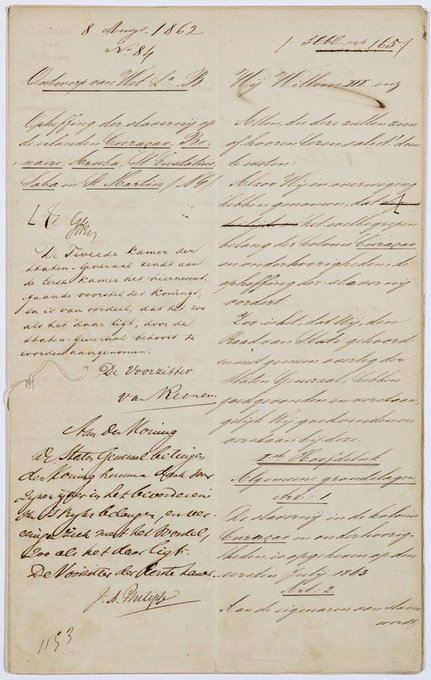 8 Aug. 1862
No. 84
Ontwerp van Wet La. B
Opheffing der slavernij op
de eilanden Curaçao, Bo-
naire, Aruba, St. Eustatius,
Saba en St. Martin (N.G.)
De Tweede Kamer der
Staten-Generaal zendt aan
de Eerste Kamer het hiernevens
gaande voorstel des Konings,
en is van oordeel, dat het zoo
als het daar ligt, door de
Staten-Generaal behoort te
worden aangenomen.
De Voorzitter
van Reenen
Aan den Koning
De Staten Generaal betuigen
den Koning hunnen dank voor
Zijnen ijver in het bevorderen
van 's Rijks belangen, en ver-
eenigen zich met het Voorstel,
zoo als het daar ligt.
De Voorzitter der Eerste Kamer
J. A. Philipse
1153
Stbl. no. 165
Wij Willem III enz.
Allen, die deze zullen zien
of hooren lezen saluut! doen
te weten:
Alzoo Wij in overweging
hebben genomen, dat
het welbegrepen
belang der kolonie Curaçao
en onderhoorigheden de
opheffing der slavernij
vordert.
Zoo is het, dat Wij, den
Raad van State gehoord
en met gemeen overleg der
Staten Generaal, hebben
goedgevonden en verstaan,
gelijk Wij goedvinden en
verstaan bij deze:
1ste Hoofdstuk
Algemeene grondslagen
Art: 1.
De slavernij in de kolonie
Curaçao en onderhoorig-
heden is opgeheven op den
eersten Julij 1863
Art: 2
Aan de eigenaren van slaven
wordt